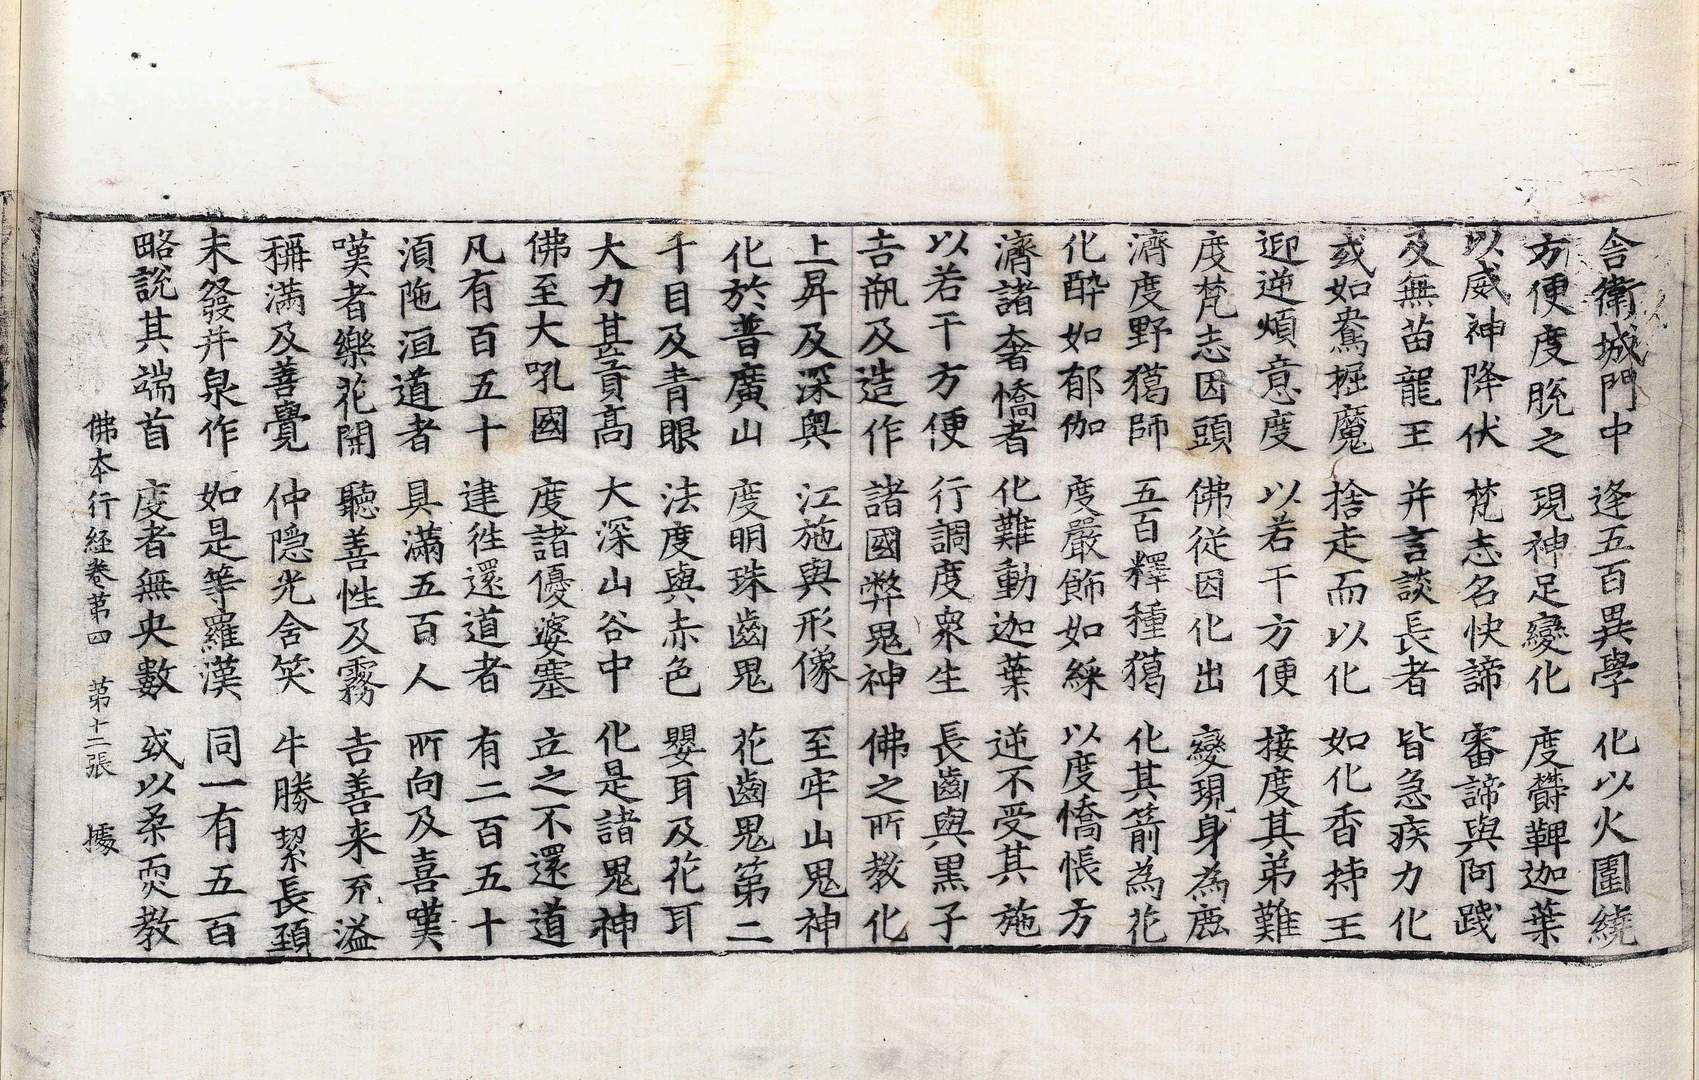 舍衛城門中 逢五百異學 化以火圍繞
方便度脫之 現神足變化 度欝鞞迦葉
以威神降伏 梵志名快諦 審諦與阿踐
及無苗龍王 并言談長者 皆急疾力化
或如鴦掘魔 捨走而以化 如化香持王
迎逆煩意度 以若干方便 接度其弟難
度梵志因頭 佛從因化出 變現身為鹿
濟度野獦師 五百釋種獦 化其箭為花
化醉如郁伽 度嚴飾如綵 以度憍悵方
濟諸奢憍者 化難動迦葉 逆不受其施
以若干方便 行調度衆生 長齒與黒子
吉瓶及造作 諸國弊鬼神 佛之所教化
上昇及深奧 江施與形像 至牢山鬼神
化於普廣山 度明珠齒鬼 花齒鬼第二
千目及青眼 法度與赤色 嬰耳及花耳
大力甚貢高 大深山谷中 化是諸鬼神
佛至大吼國 度諸優婆塞 立之不還道
凡有百五十 逮往還道者 有二百五十
須陁洹道者 具滿五百人 所向及喜嘆
嘆者樂花開 聽善性及霧 吉善来充溢
稱滿及善覺 仲隱光含笑 牛勝絜長頸
未發并泉作 如是等羅漢 同一有五百
略說其端首 度者無央數 或以柔耎教
佛本行経卷第四 第十二張 據